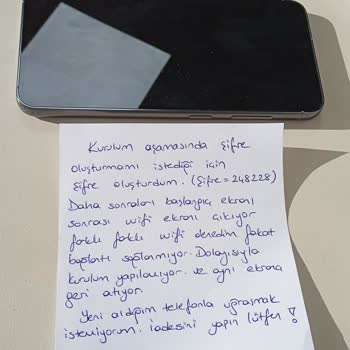 Kurulum aşamasında şifre
oluşturmamı istediği için
şifre oluşturdum. (Şifre=248228)
Daha sonraları başlangıç ekranı
sonrası wifi ekranı çıkıyor
farklı farklı wifi denedim fakat
bağlantı sağlanmıyor. Dolayısıyla
kurulum yapılamıyor. ve aynı ekrana
geri atıyor.
Yeni aldığım telefonla uğraşmak
istemiyorum. İadesini yapın lütfen !